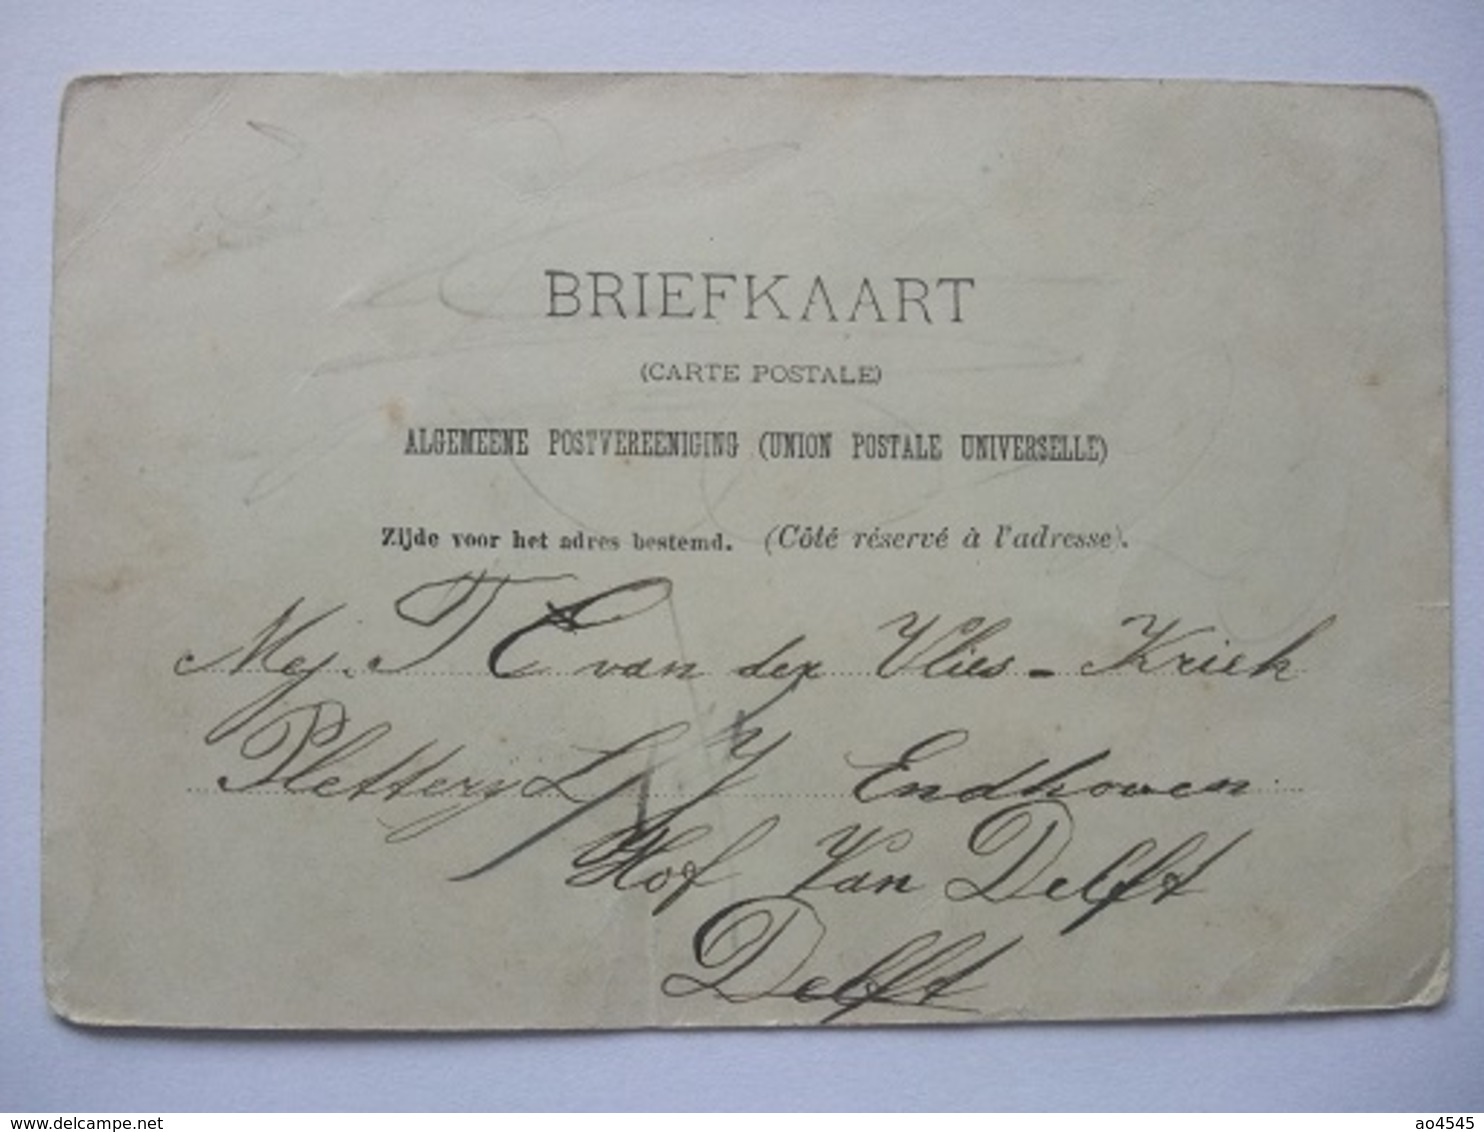 BRIEFKAART
(CARTE POSTALE)
ALGEMEENE POSTVEREENIGING (UNION POSTALE UNIVERSELLE)
Zijde voor het adres bestemd. (Côté réservé à l'adresse).
Mej. T E van der Vlies - Kriek
Endhoven
Hof Van Delft
Delft
delcampe.net
ao4545